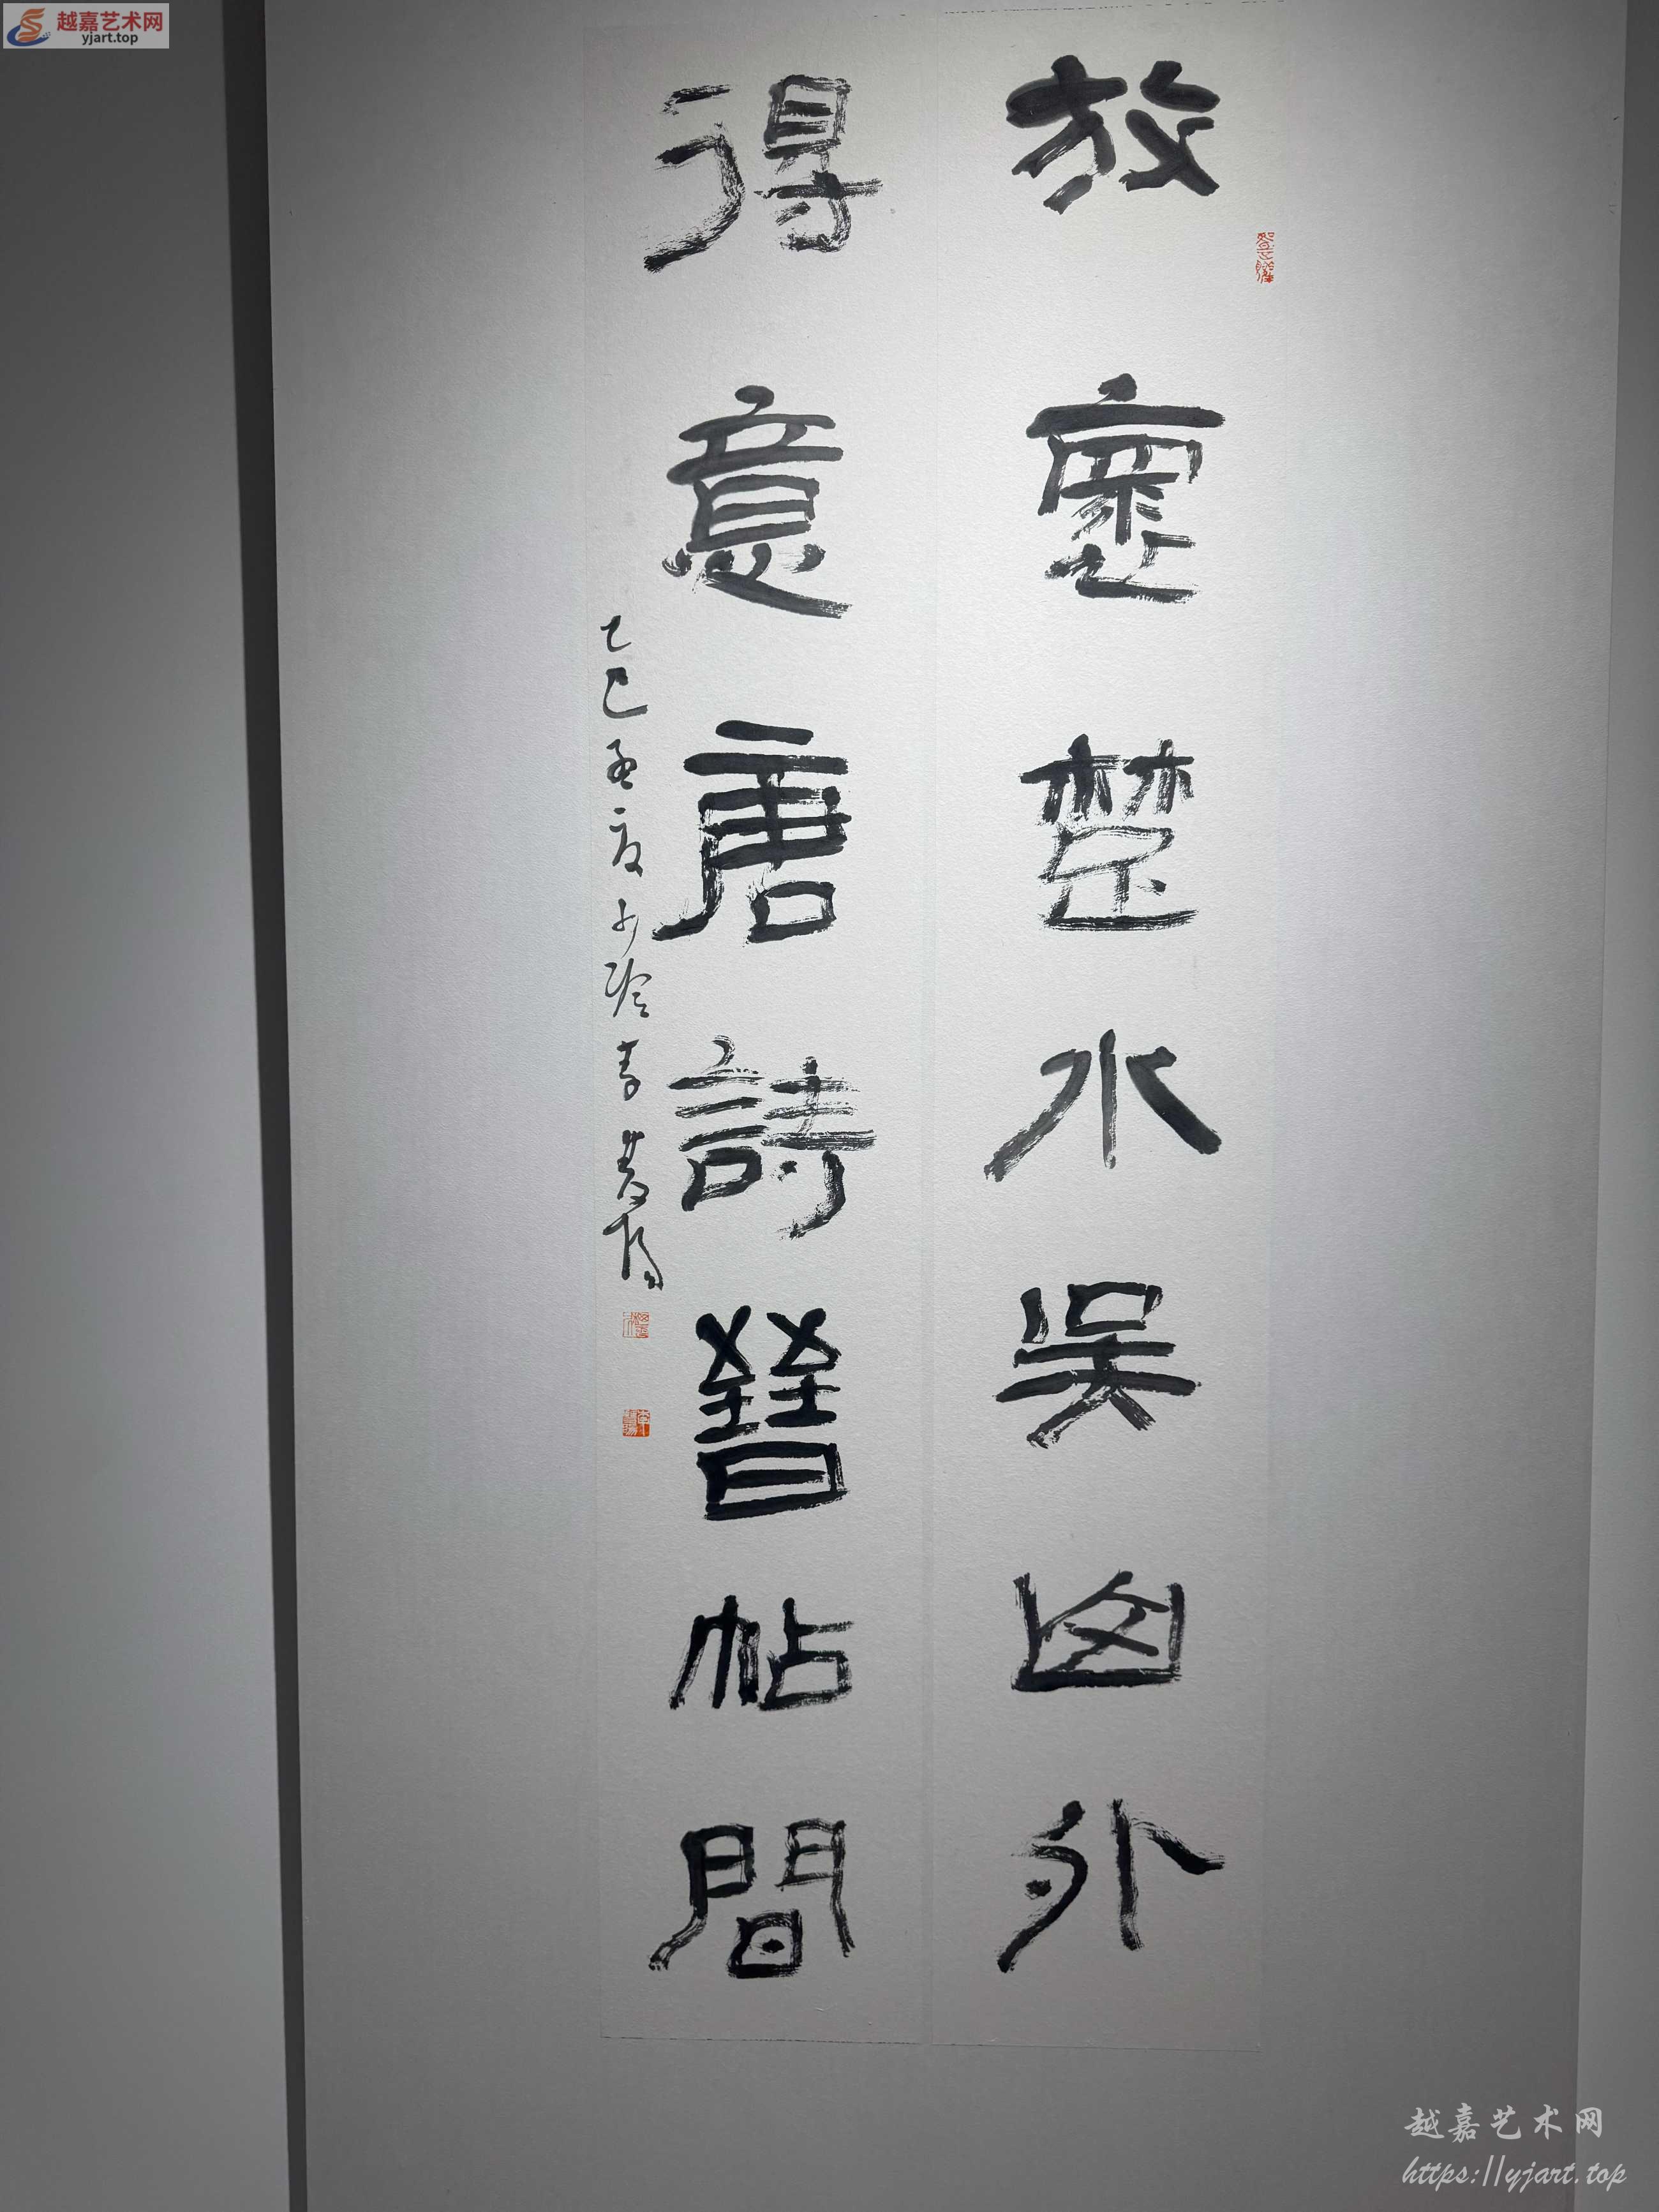 越嘉艺术网
yjart.top
放褱楚水吴山外
得意唐詩晉帖間
乙巳孟夏
越嘉艺术网
https://yjart.top